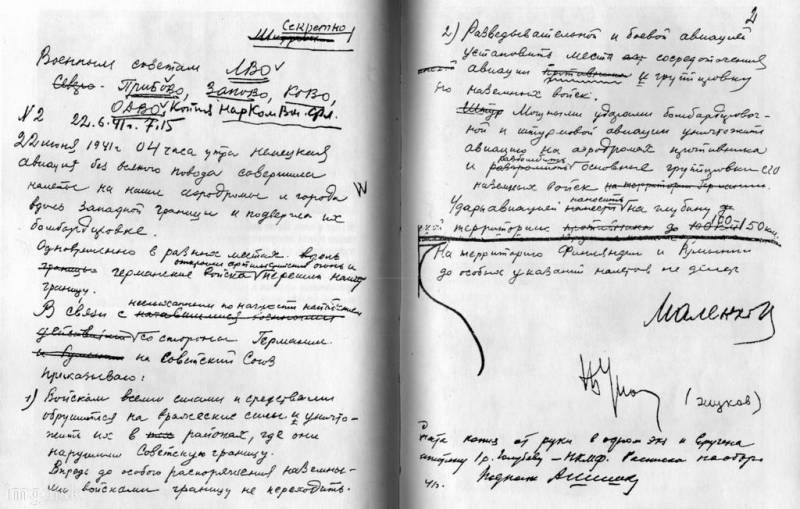 Секретно
Шифром
Военным советам ЛВО
Прибово, Запово, Ково,
ОдВО, Копия НарКомВМ. Фл.
N2 22.6.41г. 7.15
22 июня 1941г 04 часа утра немецкая
авиация без всякого повода совершила
налеты на наши аэродромы и города
вдоль западной границы и подвергла их
бомбардировке.
Одновременно в разных местах
открыли артиллерийский огонь и
германские войска перешли нашу
границу.
неслыханным по наглости нападением
В связи с
со стороны Германии
на Советский Союз
приказываю:
1) Войскам всеми силами и средствами
обрушиться на вражеские силы и уничто-
жить их в районах, где они
нарушили Советскую границу.
Впредь до особого распоряжения наземны-
ми войсками границу не переходить.
2
2) Разведывательной и боевой авиацией
установить места сосредоточения
авиации и группировку
его наземных войск.
Мощными ударами бомбардировоч-
ной и штурмовой авиации уничтожить
авиацию на аэродромах противника
разбомбить
и основные группировки его
наземных войск
наносить
Удары авиацией на глубину
территории до 100-150 км.
На территорию Финляндии и Румынии
до особых указаний налетов не делать
Маленков
(Жуков)
от руки в одном экз и вручена